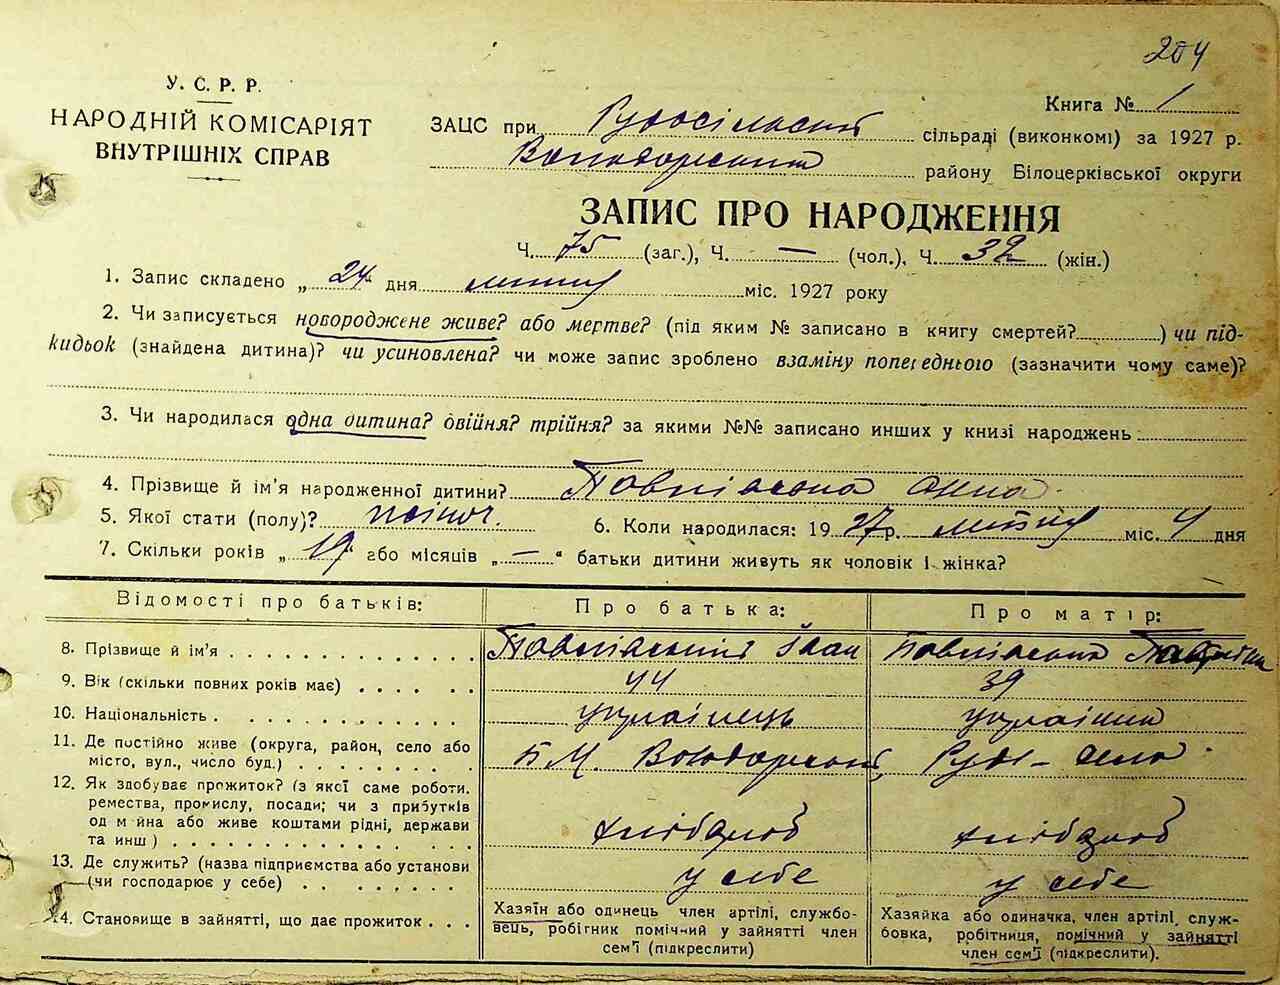 204
У. С. Р. Р.
НАРОДНІЙ КОМІСАРІЯТ
ВНУТРІШНІХ СПРАВ
Книга № 1
ЗАЦС при Рудосільській сільраді (виконкомі) за 1927 р.
Володарського району Білоцерківської округи
ЗАПИС ПРО НАРОДЖЕННЯ
Ч. 75 (заг.), Ч. — (чол.), Ч. 32 (жін.)
1. Запис складено „ 24 " дня липня міс. 1927 року
2. Чи записується новороджене живе? або мертве? (під яким № записано в книгу смертей? ) чи під-
кидьок (знайдена дитина)? чи усиновлена? чи може запис зроблено взаміну попереднього (зазначити чому саме)?
3. Чи народилася одна дитина? двійня? трійня? за якими №№ записано инших у книзі народжень
4. Прізвище й ім'я народженної дитини? Анна
5. Якої стати (полу)? жіноч. 6. Коли народилася: 1927 р. липня міс. 4 дня
7. Скільки років „ 19 " або місяців „ — " батьки дитини живуть як чоловік і жінка?
Відомості про батьків: Про батька: Про матір:
8. Прізвище й ім'я Іван
9. Вік (скільки повних років має) 44 39
10. Національність українець українка
11. Де постійно живе (округа, район, село або
місто, вул., число буд.) Володарський, Руде-село
12. Як здобуває прожиток? (з якої саме роботи.
ремества, промислу, посади; чи з прибутків
од майна або живе коштами рідні, держави
та инш) хлібороб хлібороб
13. Де служить? (назва підприємства або установи
(чи господарює у себе) у себе у себе
14. Становище в зайнятті, що дає прожиток
Хазяїн або одинець член артілі, службо-
вець, робігник помічний у зайнятті член
сем'ї (підкреслити)
Хазяйка або одиначка, член артілі, служ-
бовка, робітниця, помічний у зайнятті
член сем'ї (підкреслити).